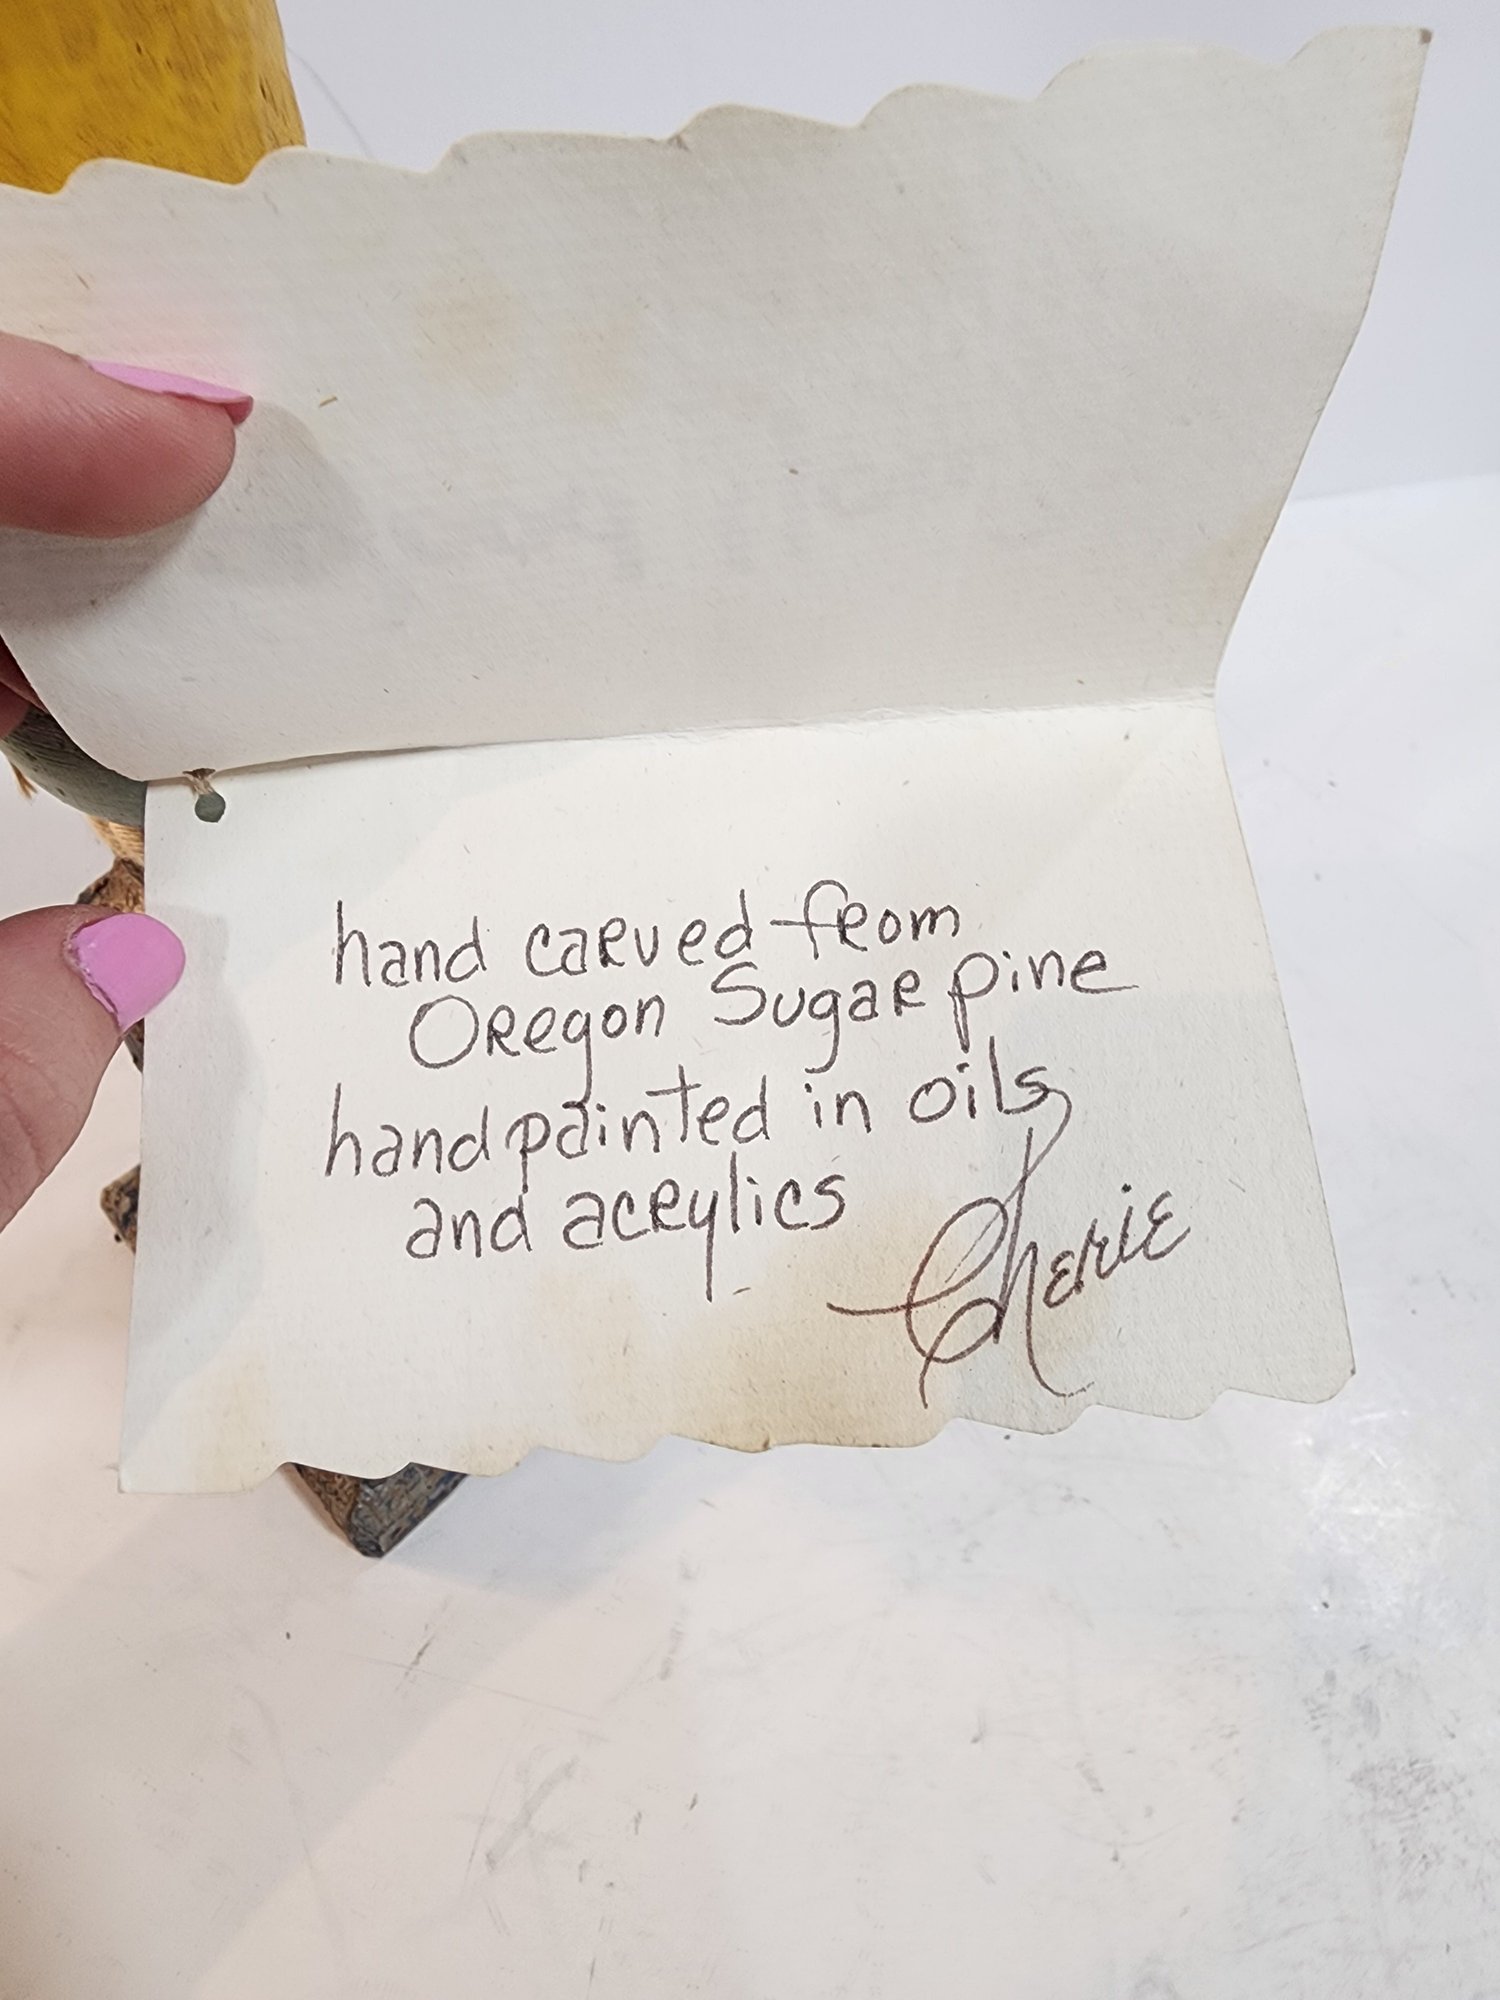 hand carved from
Oregon Sugar pine
hand painted in oils
and acrylics
Cherie